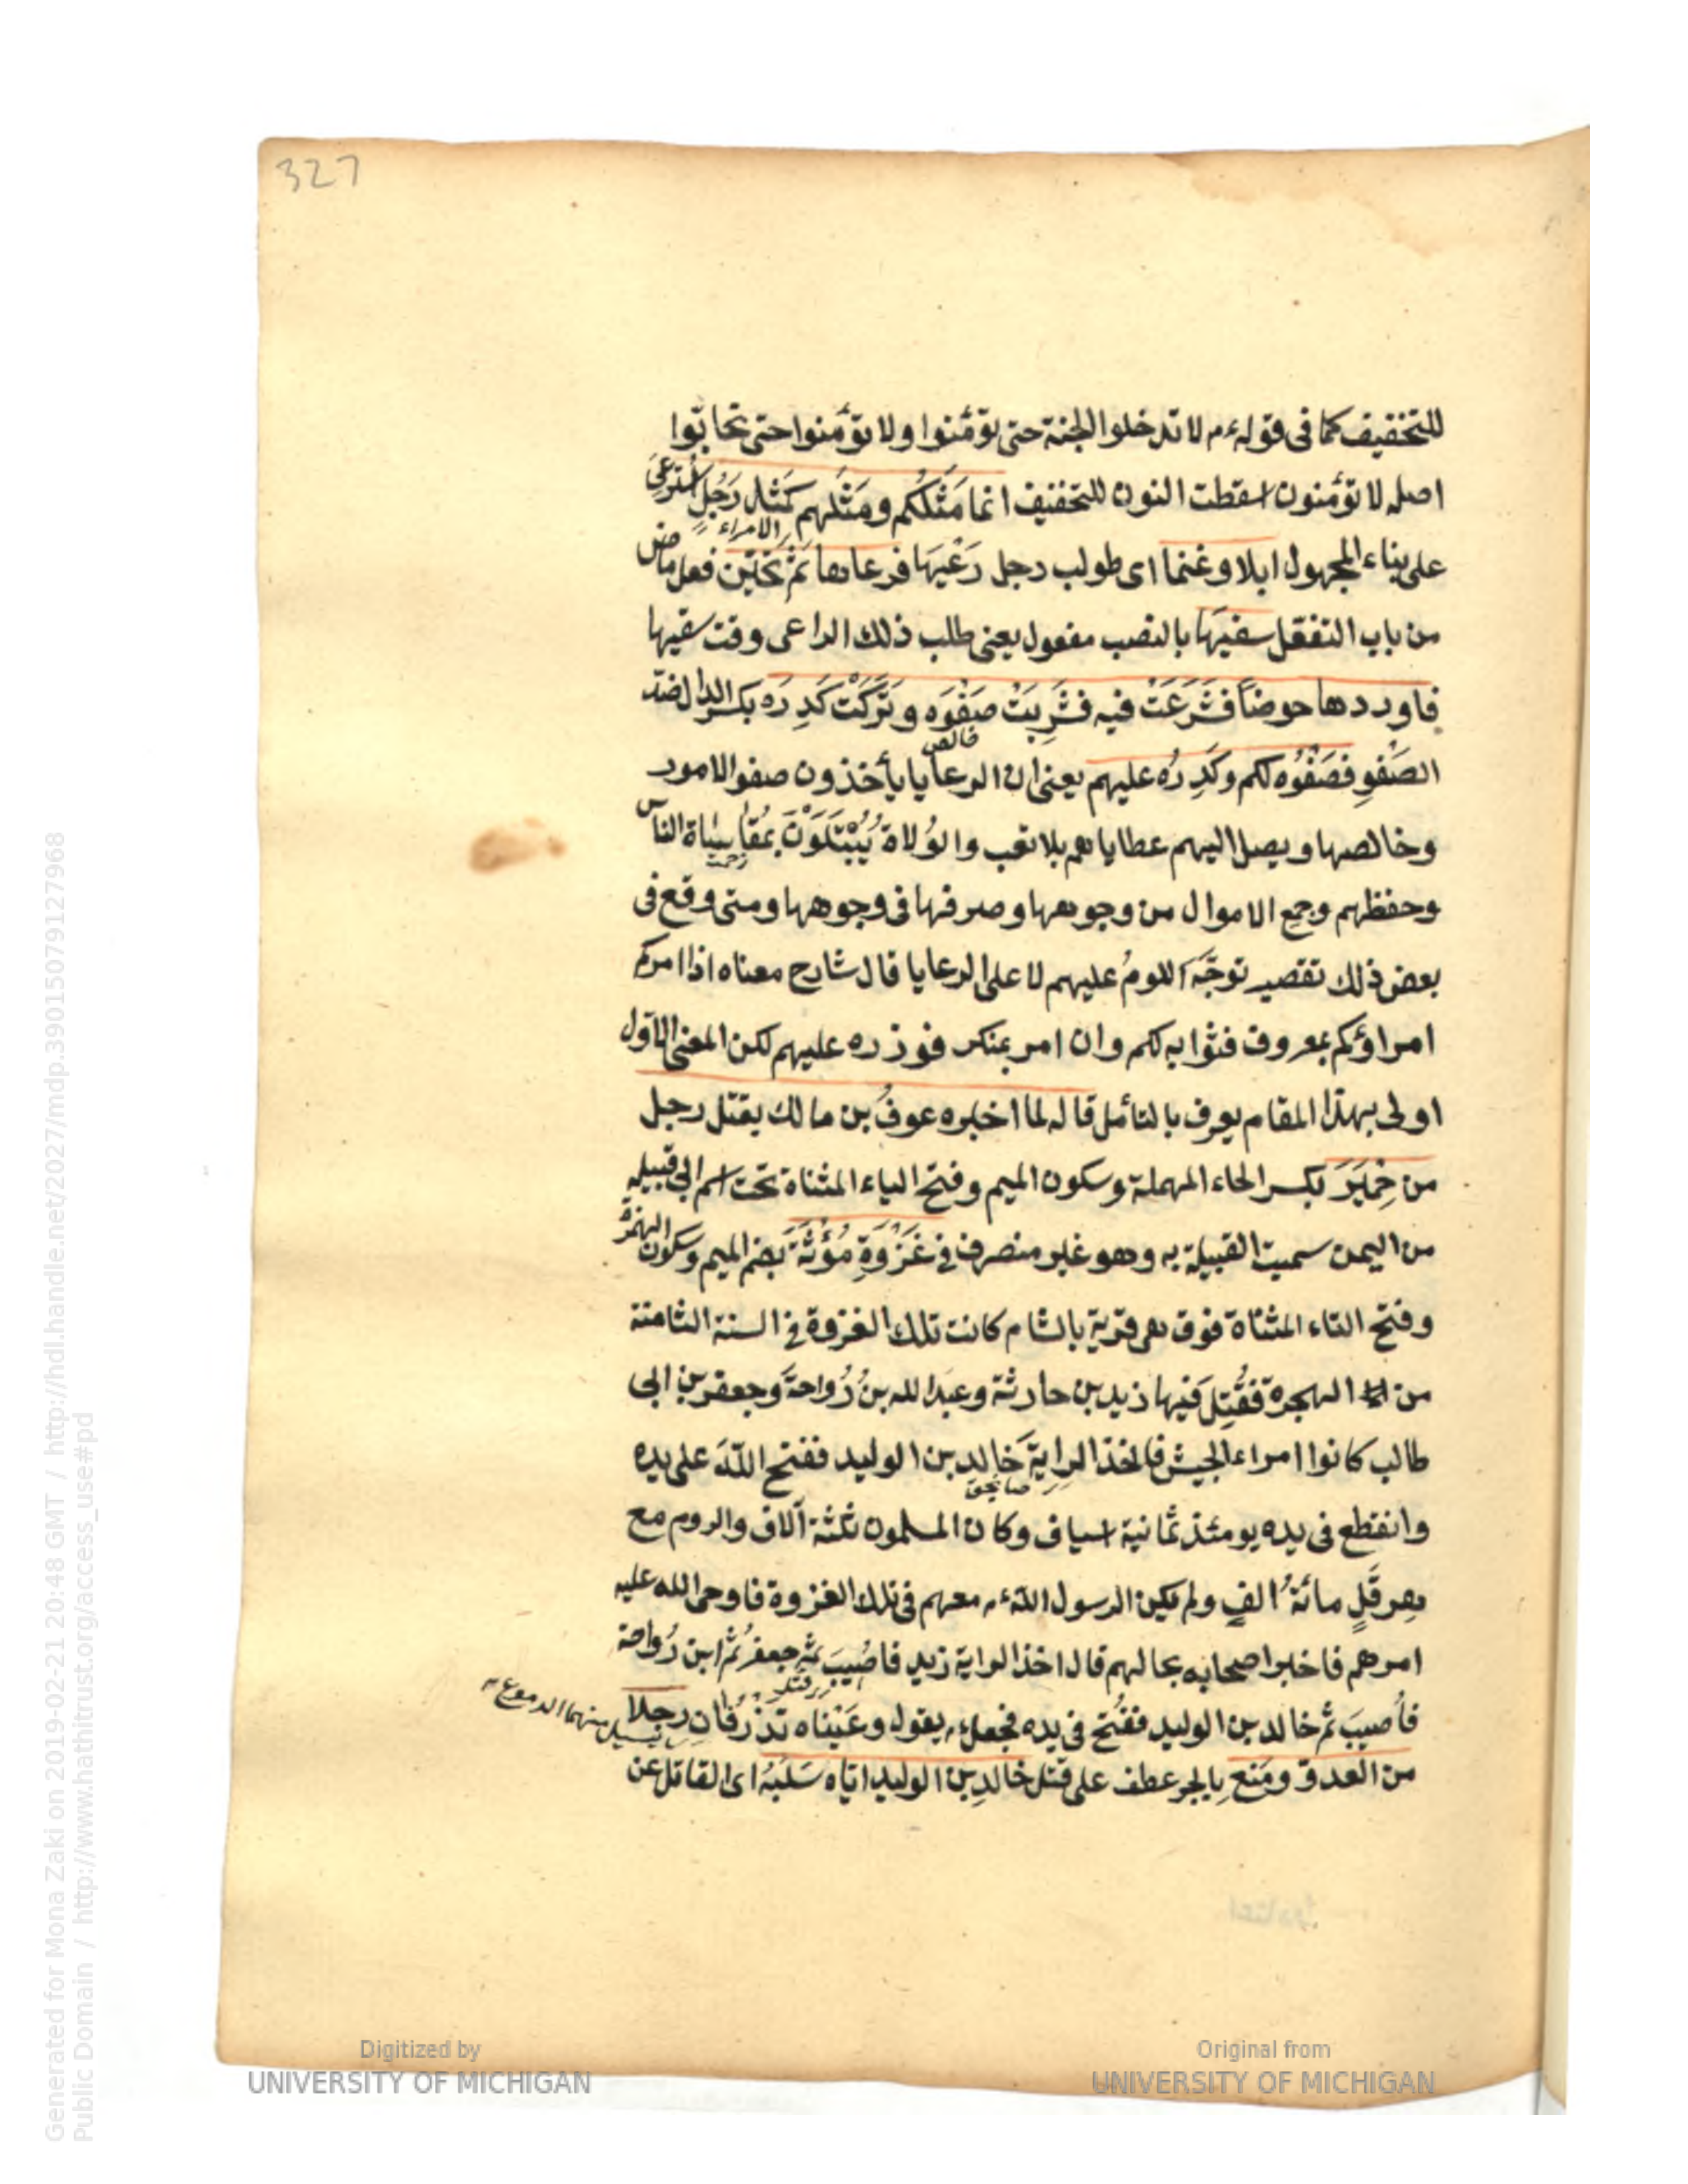 327
للتخفيف كما في قوله ءم لا تدخلوا الجنة حتى تؤمنوا ولا تؤمنوا حتى تحابّوا
اصله لا تؤمنون اسقطت النون للتخفيف انما مَثَلُكُم ومَثَلُهم كَمَثَلِ رَجُلٍ اُستُرعِيَ
الامراء
على بناء المجهول ابلا وغنما اى طولب رجل رَعْيَهَا فرعاها ثم تَحَيَّنَ فعل ماض
من باب التفعّل سقيَهَا بالنصب مفعول يعنى طلب ذلك الراعى وقت سقيها
فاوردها حوضًا فشَرَعَتْ فيه فشَرِبَتْ صَفْوَه وتَرَكَتْ كَدِرَه بكسر الدال ضدّ
خالص
الصَفْوِ فصَفْوُه لكم وكَدِرُه عليهم يعنى ان الرعايا يأخذون صفو الامور
وخالصها ويصل اليهم عطاياهم بلا تعب والوُلاة يُبْتَلَوْنَ بمُقَاسَاة الناس
وحفظهم وجمع الاموال من وجوهها وصرفها فى وجوهها ومتى وقع فى
بعض ذلك تقصير توجّه اللومُ عليهم لا على الرعايا قال شارح معناه اذا امركم
امراؤكم بمعروف فثوابه لكم وان امر بمنكر فوزره عليهم لكن المعنى الاول
اولى بهذا المقام يعرف بالتأمل قاله لما اخبره عوفُ بن مالك بقتل رجل
من حِمْيَرَ بكسر الحاء المهملة وسكون الميم وفتح الياء المثناة تحت اسم ابى قبيلة
من اليمن سميت القبيلة به وهو غير منصرف فى غَزْوَةِ مُؤْتَةَ بضم الميم وسكون الهمزة
وفتح التاء المثناة فوق هى قرية بالشام كانت تلك الغزوة فى السنة الثامنة
من الهجرة فقُتِلَ فيها زيد بن حارثة وعبد الله بنُ رُواحةَ وجعفر بن ابى
طالب كانوا امراء الجيش فاخذ الراية خالد بن الوليد ففتح اللهُ على يده
وانقطع فى يده يومئذ ثمانية اسياف وكان المسلمون ثلثة آلاف والروم مع
هِرقَلٍ مائةُ الفٍ ولم يكن الرسول الله ءم معهم فى تلك الغزوة فاوحى الله عليه
امرهم فاخبر اصحابه بحالهم قال اخذ الراية زيد فاُصيبَ ثم جعفرُ ثم ابن رُواحة
فاُصيبَ ثم خالد بن الوليد ففُتح فى يده فجعل ءم يقول وعَيْنَاه تَذْرُفَانِ رجلا
يسيل منهما الدموع
من العدوّ ومَنعِ بالجر عطف على قتل خالدِ بن الوليد اياه سَلَبَهُ اى القاتل عن
Digitized by
UNIVERSITY OF MICHIGAN
Original from
UNIVERSITY OF MICHIGAN
Generated for Mona Zaki on 2019-02-21 20:48 GMT / http://hdl.handle.net/2027/mdp.39015079127968
Public Domain / http://www.hathitrust.org/access_use#pd